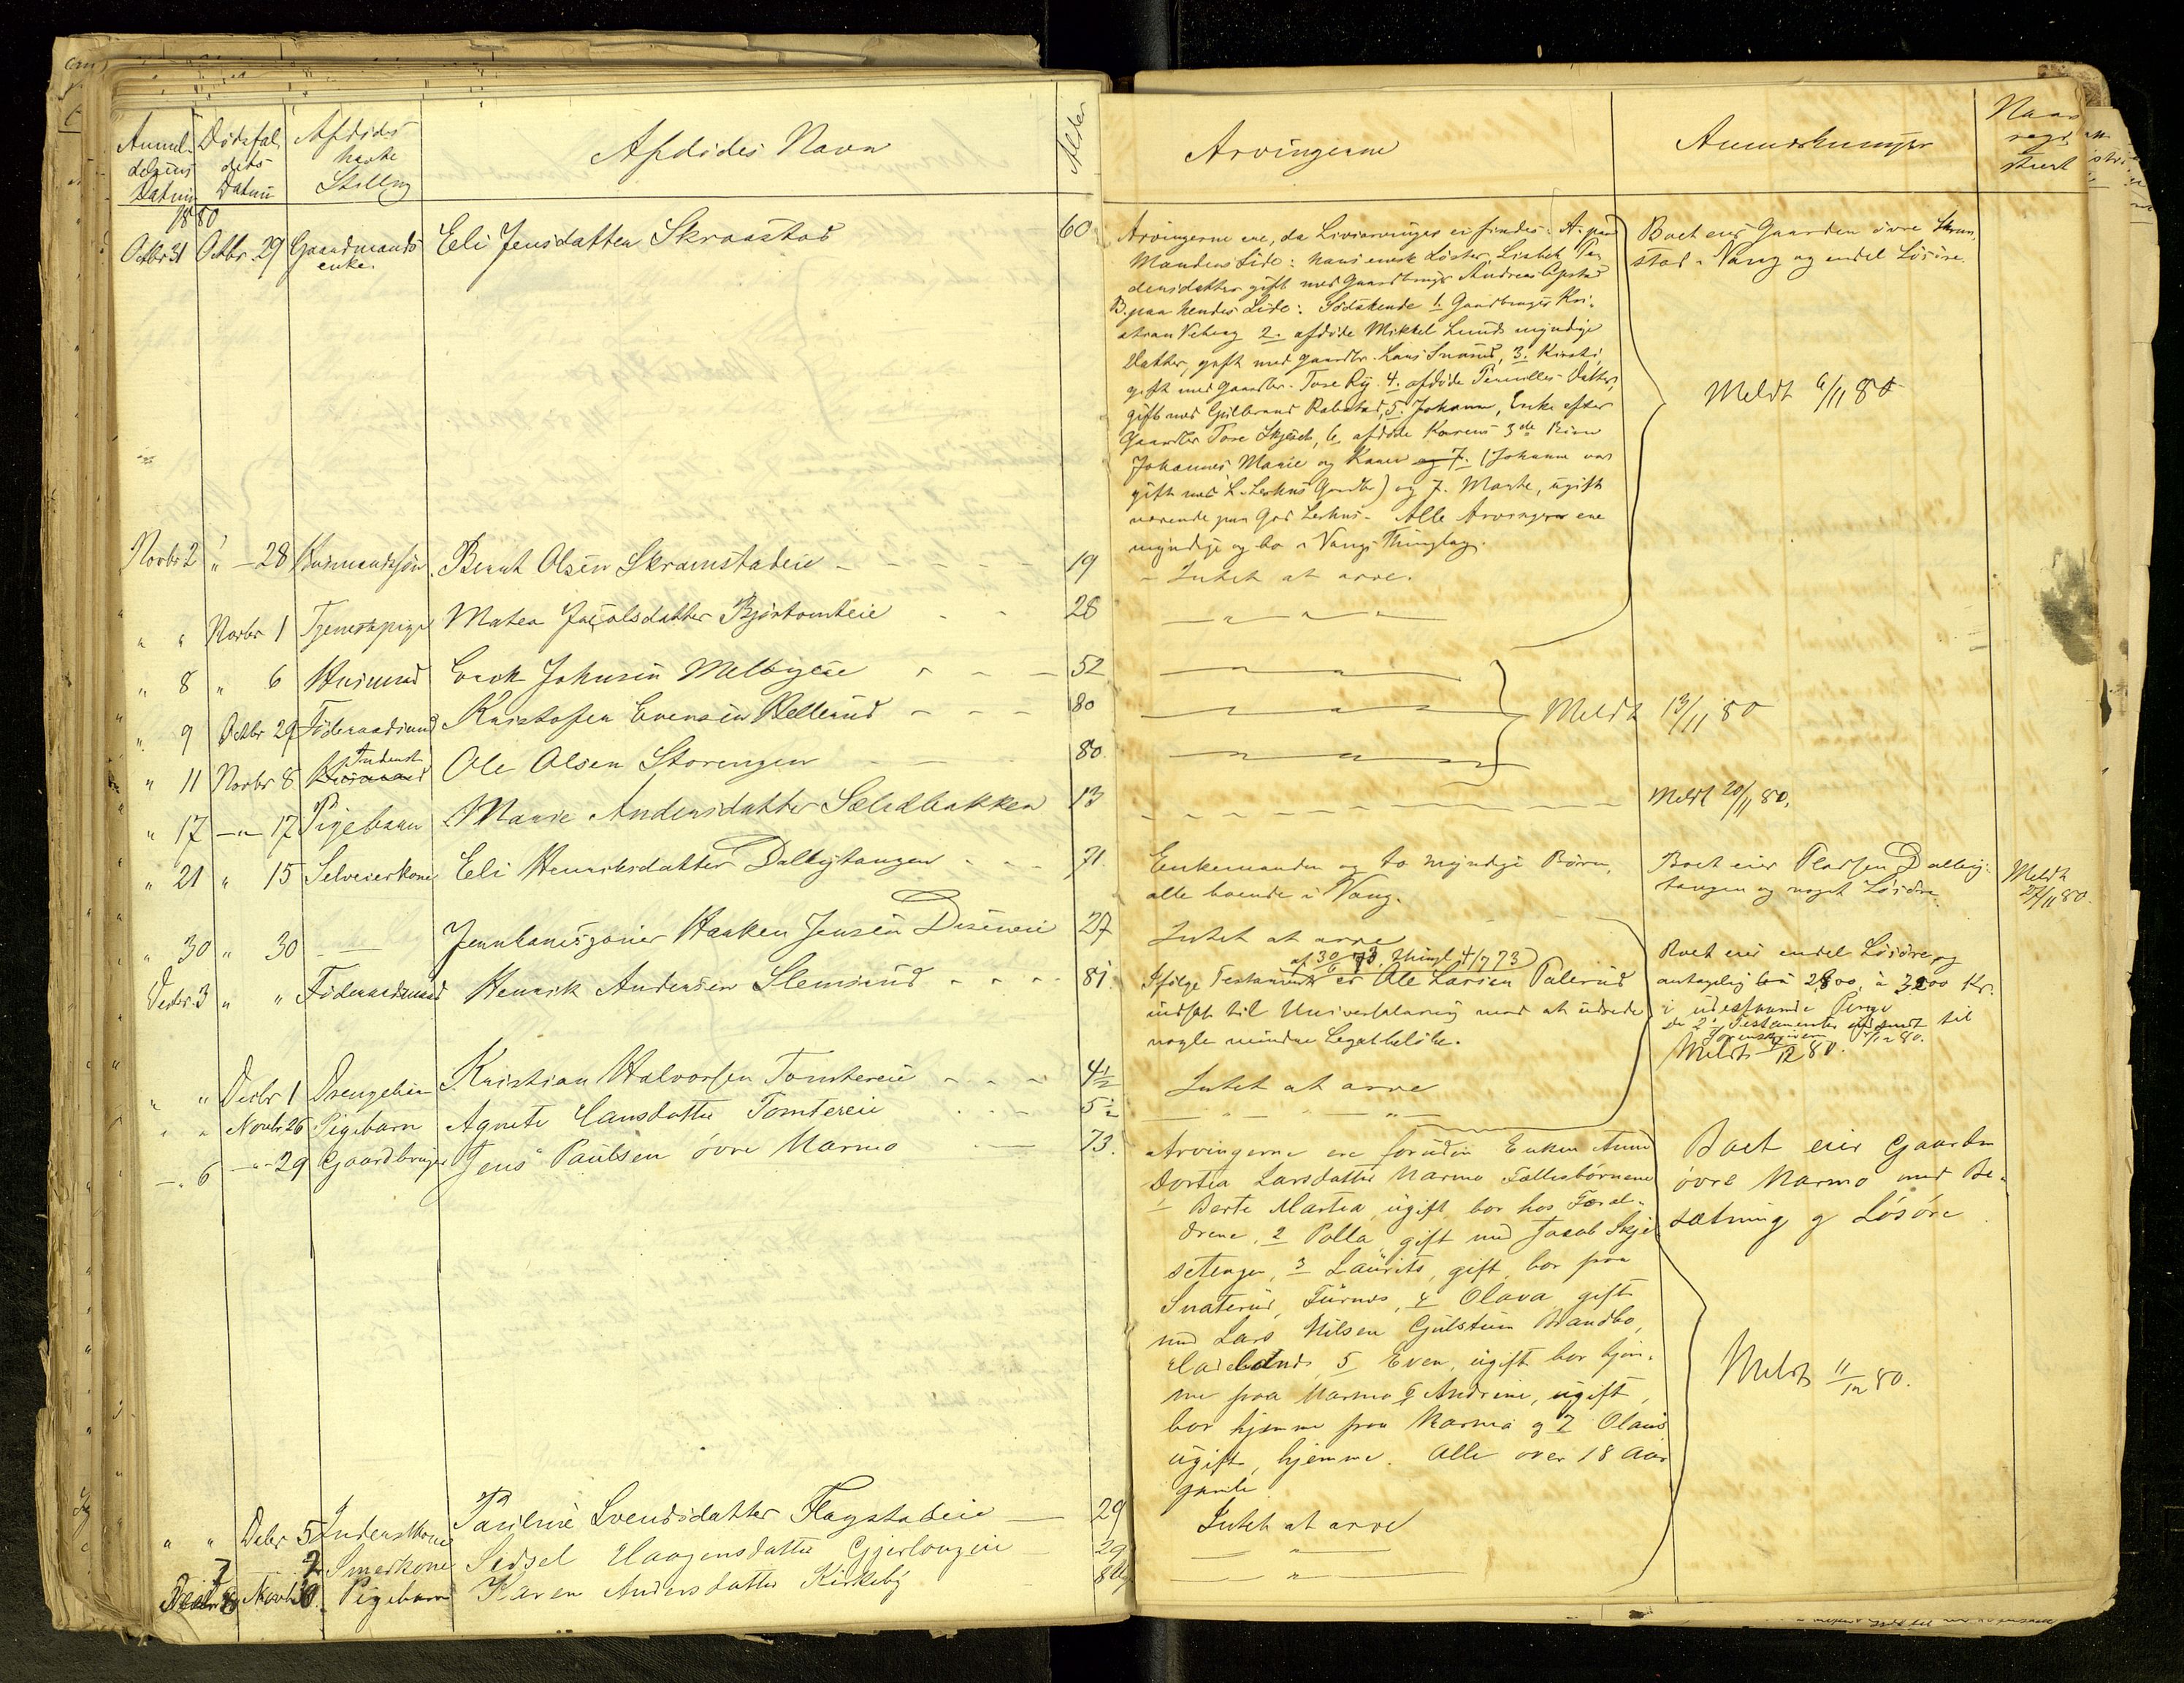 Anmel- Dödsfal- Afdödes Afdödes Navn Alder Arvingerne Anmærkninger Naar
delsens dets havte regi
Datum Datum Stilling strert
1880
Octbr 31 Octbr 29 Gaardmands Eli Jensdatter Skraastad 60
enke.
Arvingerne ere, da Livsarvinger ei findes: A. paa
Mandens Side: hans eneste Söster Lisbeth Pe-
dersdatter gift med Gaardbruger Andreas
B. paa hendes Side: Södskende 1. Gaardbruger Kri-
stian Veberg 2. afdöde Mikkel Lunds myndige
Datter, gift med Gaardbr. Lars 3. Kirsti,
gift med Gaardbr. Tore Ry. 4. afdöde Pernilles Datter,
gift med Gulbrand Rabstad, 5. Johanne, Enke efter
Gaardbr Tore 6. afdöde Karens 3de Börn
Johannes Marie og Karen og 7. (Johanne var
gift med L. Gaardbr) og 7. Marthe, ugift
værende paa Grd Alle Arvingerne ere
myndige og bo i Vangs Thinglag.
Boet eier Gaarden övre Skraa-
stad i Vang og endel Lösöre.
Meldt 6/11 80
Novbr 2 " - 28 Husmandssön Bernt Olsen Skramstadeie - - - - - 19 - Intet at arve.
" " Novbr 1 Tjenestepige Matea Jacobsdatter Bjørtomteie - - 28 — " — " — " —
" 8 " 6 Husmand Erik Johnsen Melbyeie - - - 52 — " — " —
" 9 Octbr 29 Föderaadsmand Kristofer Evensen Hellerud - - - 80 — " — " — Meldt 13/11 80
" 11 Novbr 8 Husmand Inderst Ole Olsen Storengen - - - 80 — " — " —
" 17 — " — 17 Pigebarn Marie Andersdatter Sælidbakken 13 - - - - - - Meldt 20/11 80.
" 21 " 15 Selveierkone Eli Henriksdatter Dalbytangen - - - 71. Enkemanden og to myndige Börn, Boet eier Pladsen Dalby- Meldt
alle boende i Vang. tangen og noget Lösöre. 27/11 80.
" 30 " 30 — Haaken Jensen Diseneie 27 Intet at arve
Decbr. 3 " " Föderaadsmand Henrik Andersen Slemsrud - - - - 81.
af 30/6 73. Thingl. 4/7 73
Ifölge Testamente er Ole Larsen Pålerud
indsat til Universalarving mod at udrede
nogle mindre Legatbelöb.
Boet eier endel Lösöre, og
antagelig 2800 à 3200 Kr.
i udestaaende Penge
de 2 Testamenter afsendt til
Sorenskriveren /12 80.
Meldt 4/12 80.
" " Decbr 1 Drengebarn Kristian Halvorsen Tomtereie - - - 4 1/2 Intet at arve
" " Novbr 26 Pigebarn Agnete Hansdatter Tomtereie - - - 5 1/2 — " — " —
— " 6 — " — 29 Gaardbruger Jens Paulsen övre Narmo — 73.
Arvingerne ere foruden Enken Anne
Dortea Larsdatter Narmo Fællesbörnene
1 Berte Martea, ugift, bor hos Foræl-
drene, 2 Polla, gift med Jacob Skje-
setengen, 3 Laurits, gift, bor paa
Snaterud, Furnes, 4 Olava gift
med Lars Nilsen Gulstuen Brandbo,
Hadelands, 5 Even, ugift, bor hjem-
me paa Narmo 6 Andrine, ugift,
bor hjemme paa Narmo og 7 Olaus
ugift, hjemme. Alle over 18 Aar
gamle.
Boet eier Gaarden
övre Narmo med Be-
sætning og Lösöre
Meldt 11/12 80.
" " Debr 5 Inderstkone Pauline Svendsdatter Flagstadeie — 29 Intet at arve
7 7 Smedkone Sidsel Haagensdatter — 29 — " —
8 Novbr 30. Pigebarn Karen Andersdatter Kirkeby — " —